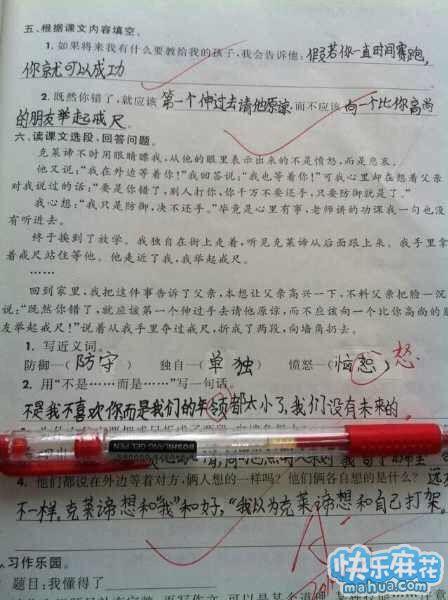 五、根据课文内容填空。
1. 如果将来我有什么要教给我的孩子,我会告诉他:假若你一直时间赛跑,
你就可以成功
2. 既然你错了,就应该第一个伸过去请他原谅而不应该向一个比你高尚
的朋友举起戒尺。
六、读课文选段,回答问题。
克莱谛不时用眼睛瞟我,从他的眼里表示出来的不是愤怒,而是悲哀。
他又说:“我在外边等着你!”我回答说:“我也等着你!”可我心里却在想着父亲
对我说过的话:“要是你错了,别人打你,你千万不要还手,只要防御就是了。”
我心想:“我只是防御,决不还手。”毕竟是心里有事,老师讲的功课我一句也没
有听进去。
终于挨到了放学。我独自在街上走着,听见克莱谛从后面跟上来。我手里拿
着戒尺站住等他。他走近了我,我举起戒尺。
……
回到家里,我把这件事告诉了父亲,本想让父亲高兴一下,不料父亲把脸一沉
说:“既然你错了,就应该第一个伸过手去请他原谅,而不应该向一个比你高尚的朋
友举起戒尺!”说着从我手里夺过戒尺,折成了两段,向墙角扔去。
1. 写近义词。
防御—(防守) 独自—(单独) 愤怒—(恼怨) 怒
2. 用“不是……而是……”写一句话。
不是我不喜欢你而是我们的年领都太小了,我们没有未来的。
4. 他们都说在外边等着对方,俩人想的一样吗?他们俩各自想的是什么?
不一样,克莱谛想和“我”和好,“我以为克莱谛想和自己打架。
习作乐园。
题目:我懂得了
快乐麻花